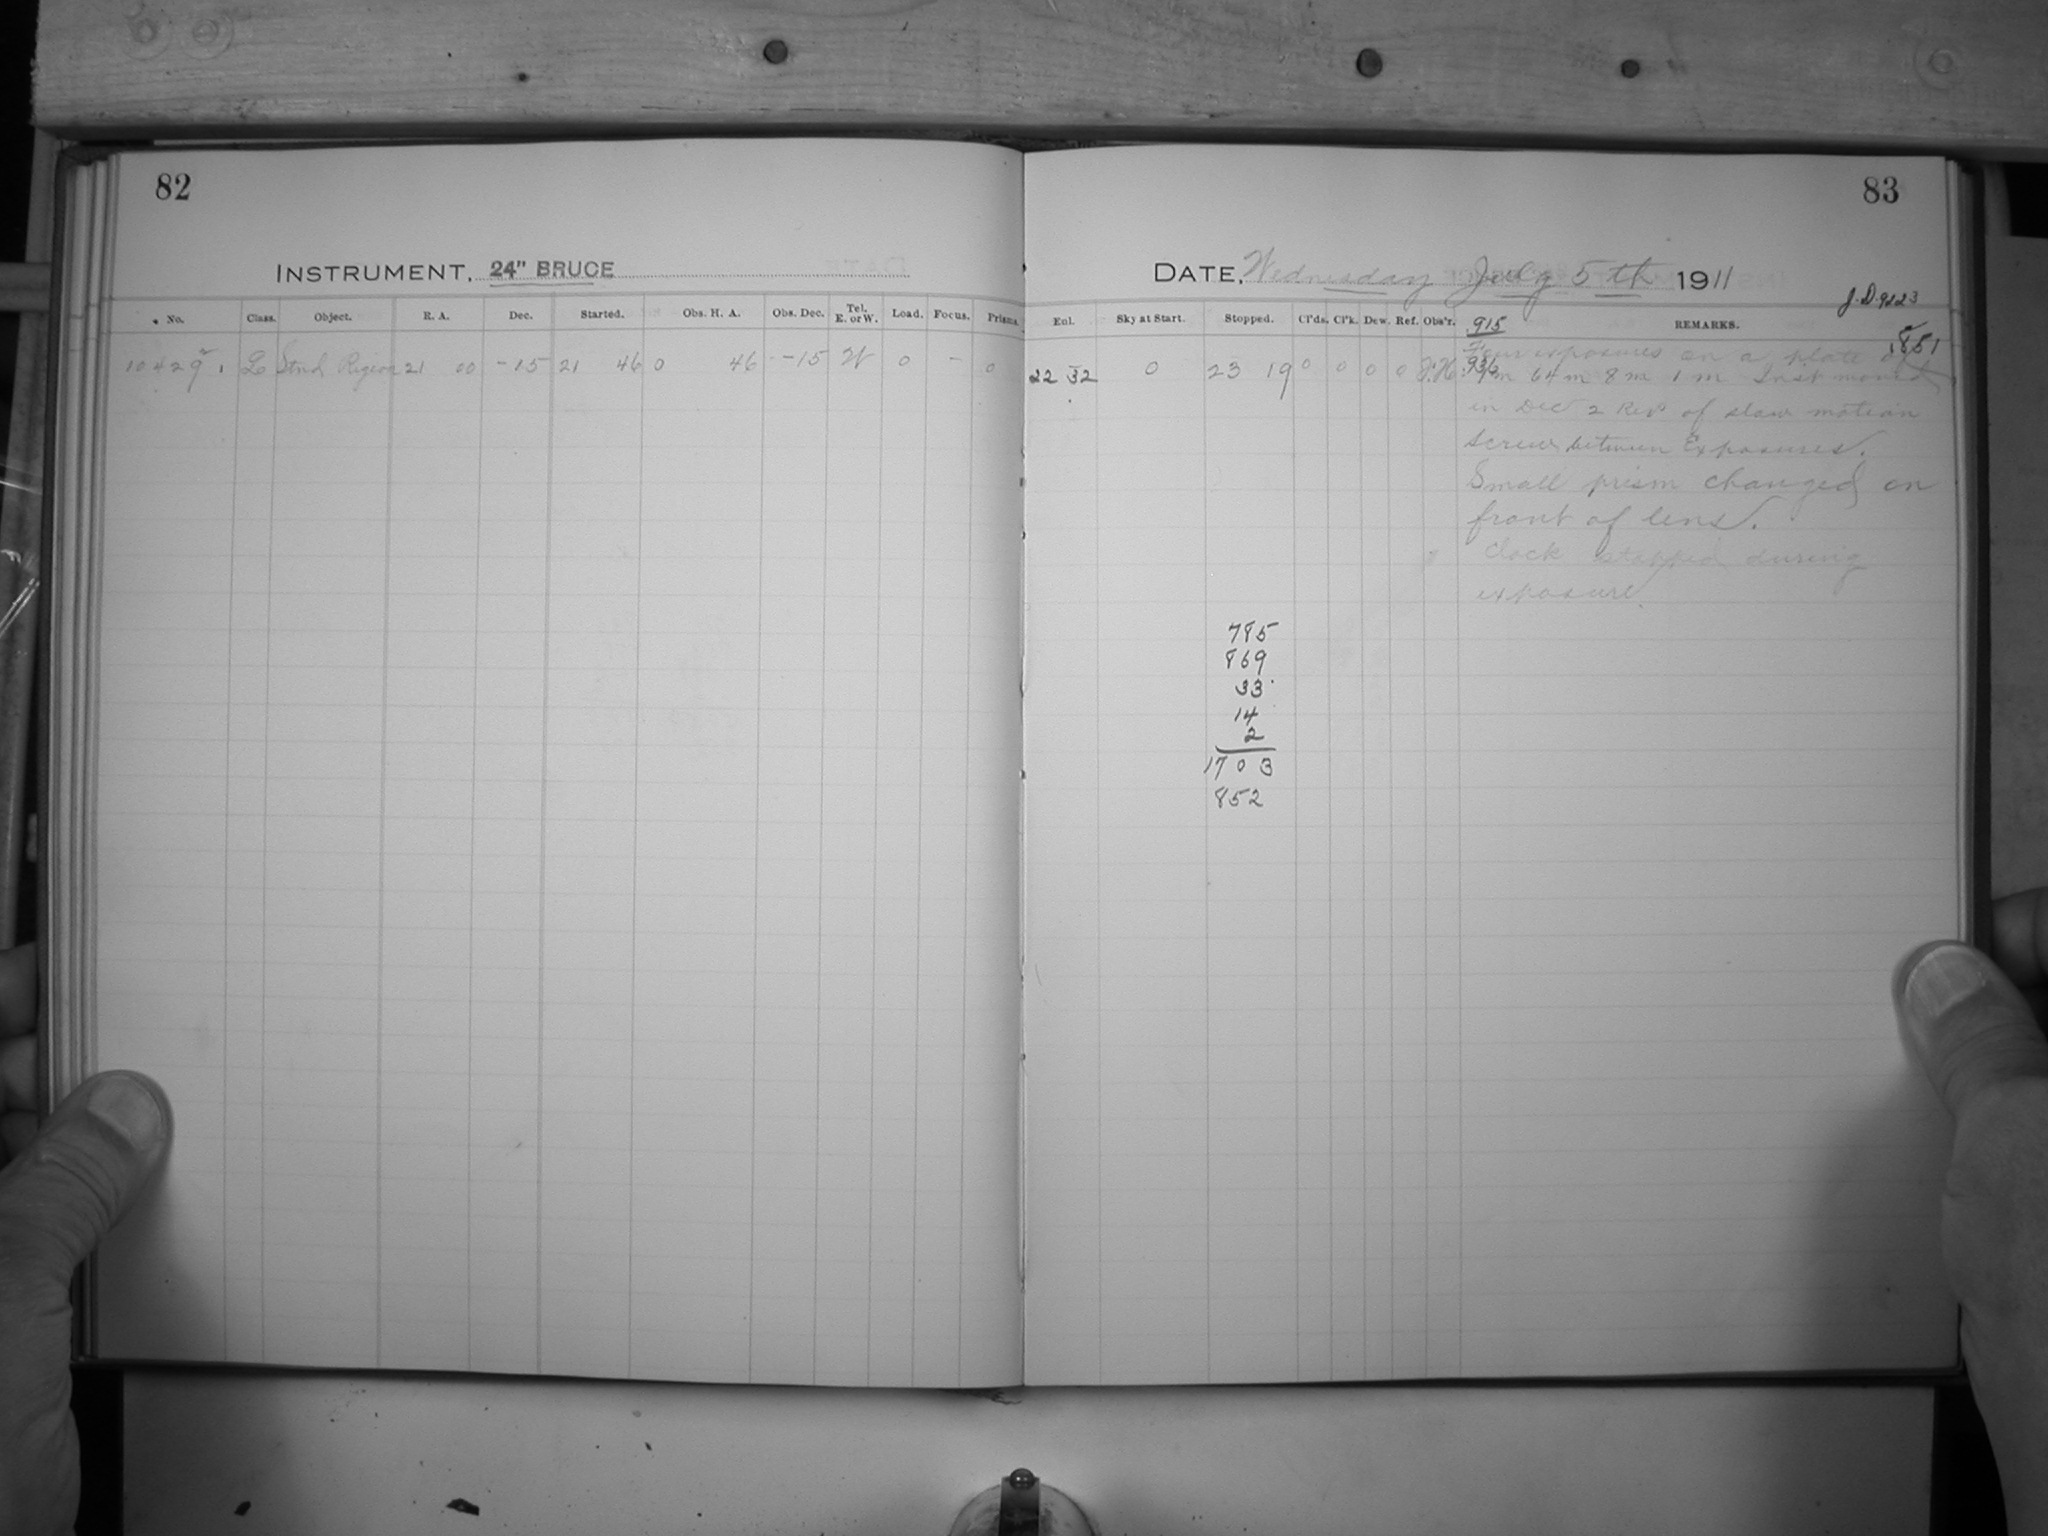 82
INSTRUMENT, 24" BRUCE
No. Class. Object. R. A. Dec. Started. Obs. H. A. Obs. Dec. Tel. E. or W. Load. Focus. Prisms.
10429 L Stnd Region 21 00 -15 21 46 0 46 -15 W 0 - 0
83
DATE, Wednesday July 5th 1911
J.D. 9223
Enl. Sky at Start. Stopped. Cl'ds. Cl'k. Dew. Ref. Obs'r. 915 REMARKS.
.851
Four exposures on a plate of
22 32 0 23 19 0 0 0 0 936 64m 8m 1m Inst moved
in Dec 2 Revs of slow motion
screw between Exposures.
Small prism changed on
front of lens.
Clock stopped during
exposure.
785
869
33
14
2
1703
852